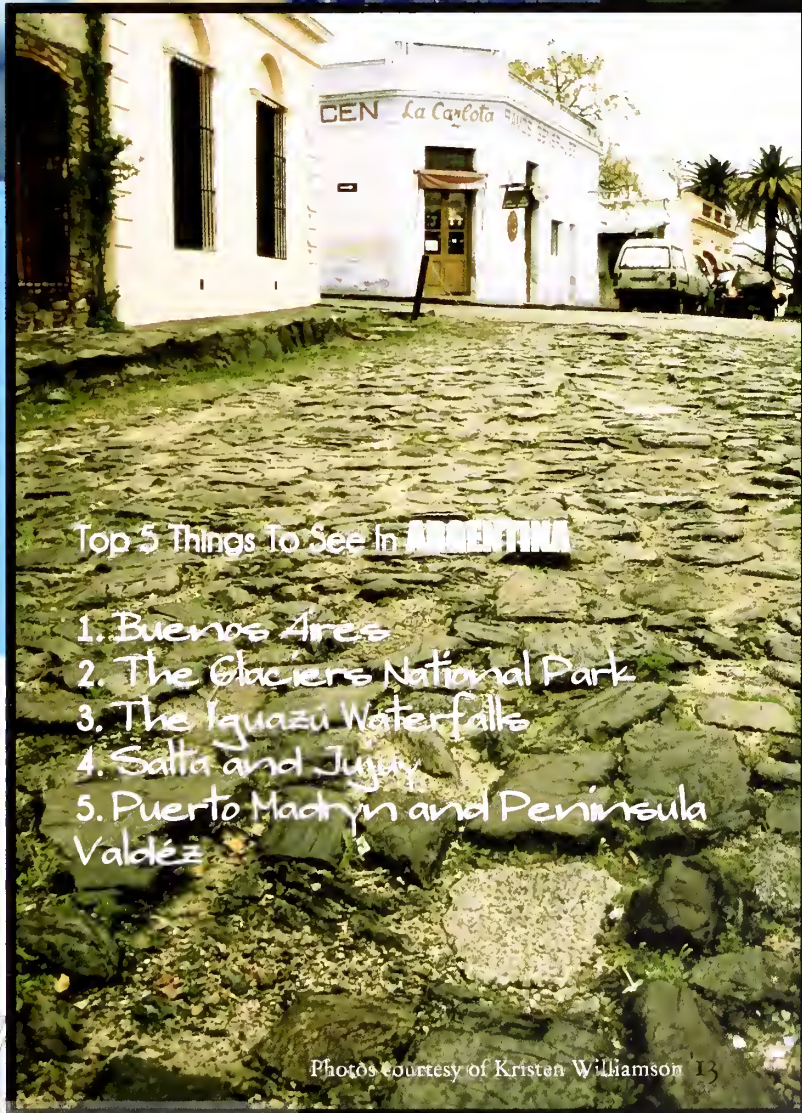 CEN La Carlota
Top 5 Things To See In ARGENTINA
1. Buenos Aires
2. The Glaciers National Park
3. The Iguazú Waterfalls
4. Salta and Jujuy
5. Puerto Madryn and Península
Valdéz
Photos courtesy of Kristen Williamson '13